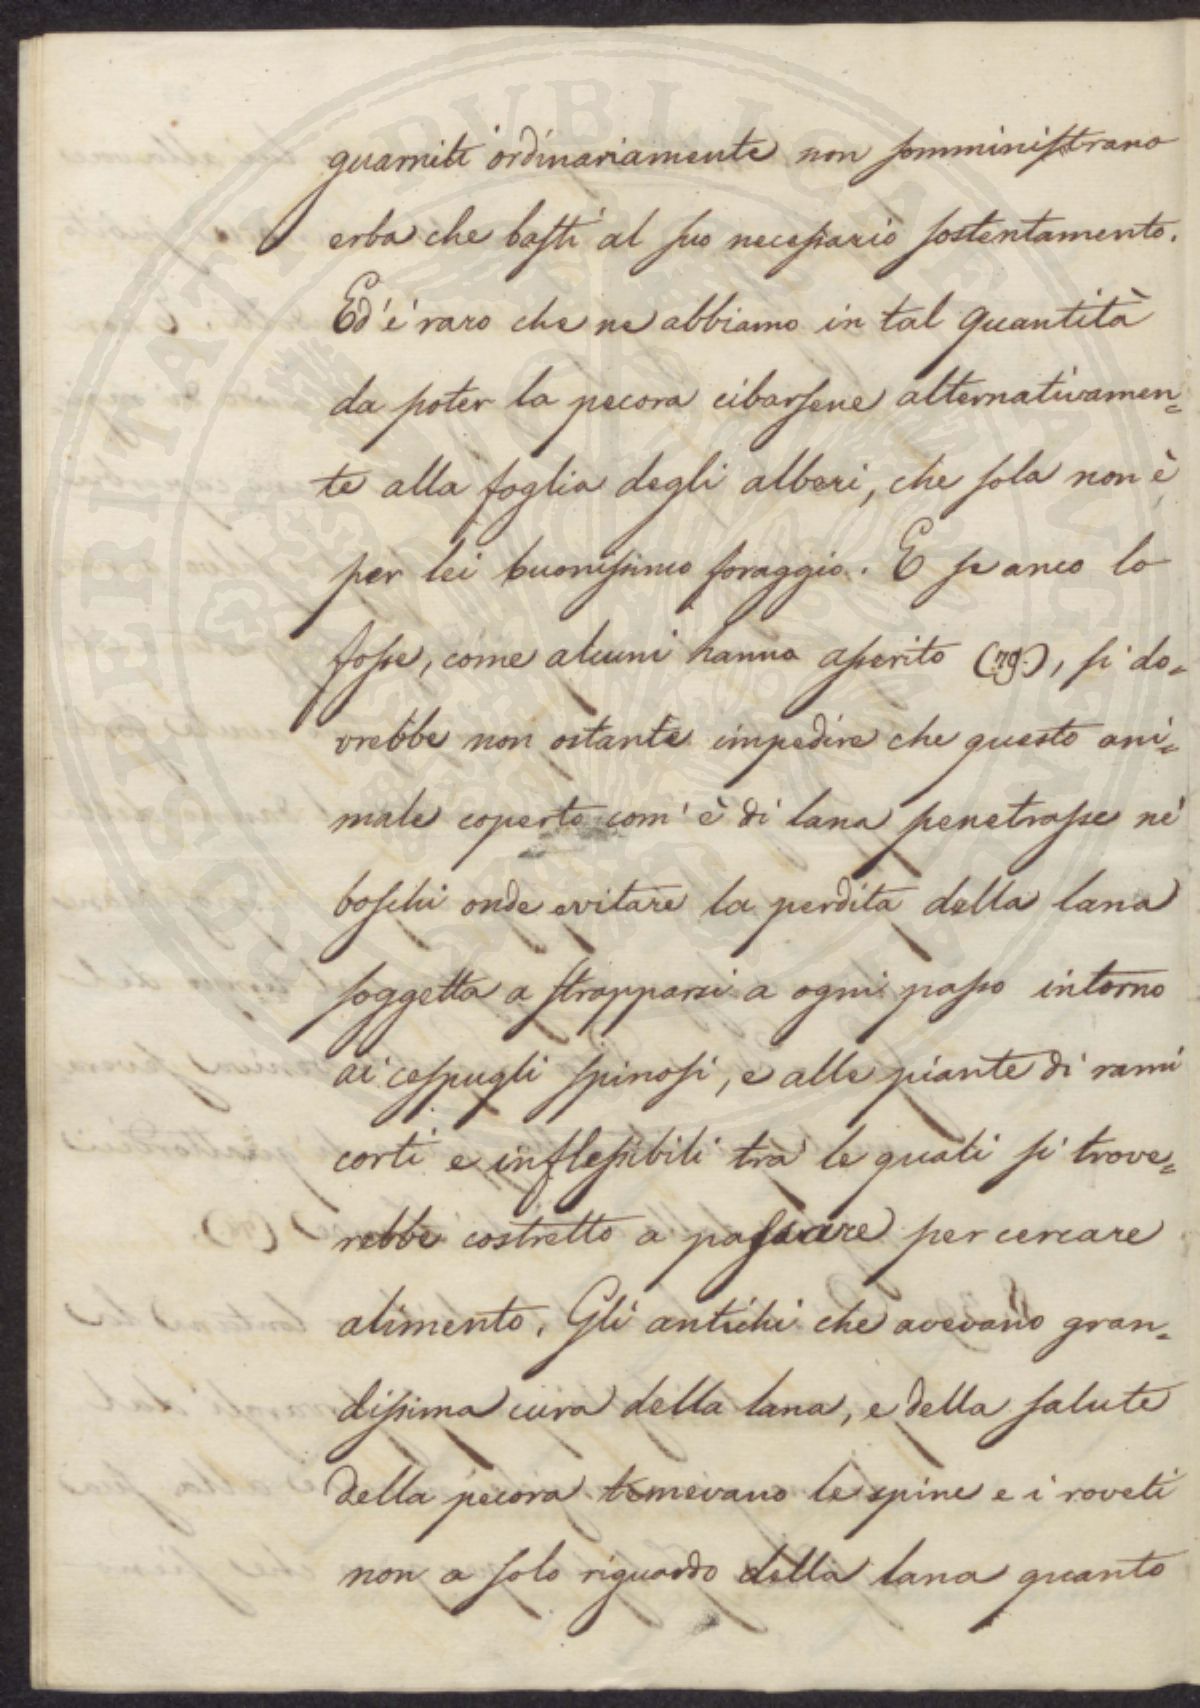 guarniti ordinariamente non somministrano
erba che basti al suo necessario sostentamento.
Ed'è raro che ne abbiamo in tal quantità
da poter la pecora cibarsene alternativamen=
te alla foglia degli alberi, che sola non è
per lei buonissimo foraggio. E se anco lo
fosse, come alcuni hanno asserito (79.), si do=
vrebbe non ostante impedire che questo ani=
male coperto com'è di lana penetrasse ne'
boschi onde evitare la perdita della lana
soggetta a strapparsi a ogni passo intorno
ai cespugli spinosi, e alle piante di rami
corti e inflessibili trà le quali si trove=
rebbe costretto a passare per cercare
alimento. Gli antichi che avevano gran=
dissima cura della lana, e della salute
della pecora temevano le spine e i roveti
non a solo riguardo della lana quanto